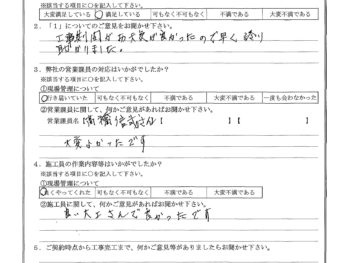 ※該当する項目に○を記入して下さい。
大変満足している 満足している 可もなく不可もなく 不満である 大変不満である
2．「1」についてのご意見をお聞かせ下さい。
工事期間が
良かったので早く
助かりました。
3．弊社の営業課員の対応はいかがでしたか？
※該当する項目に○を記入して下さい。
①現場管理について
行き届いていた 可もなく不可もなく 不満である 大変不満である 一度も会わなかった
②営業課員に関して、何かご意見があればお聞かせ下さい。
営業課員名【 】【 】
大変よかったです
4．施工員の作業内容等はいかがでしたか？
※該当する項目に○を記入して下さい。
①現場管理について
良くやってくれた 可もなく不可もなく 不満である 大変不満である
②施工員に関して、何かご意見があればお聞かせ下さい。
良い大工さんで良かったです
5．ご契約時点から工事完工まで、何かご意見等がありましたらお聞かせ下さい。